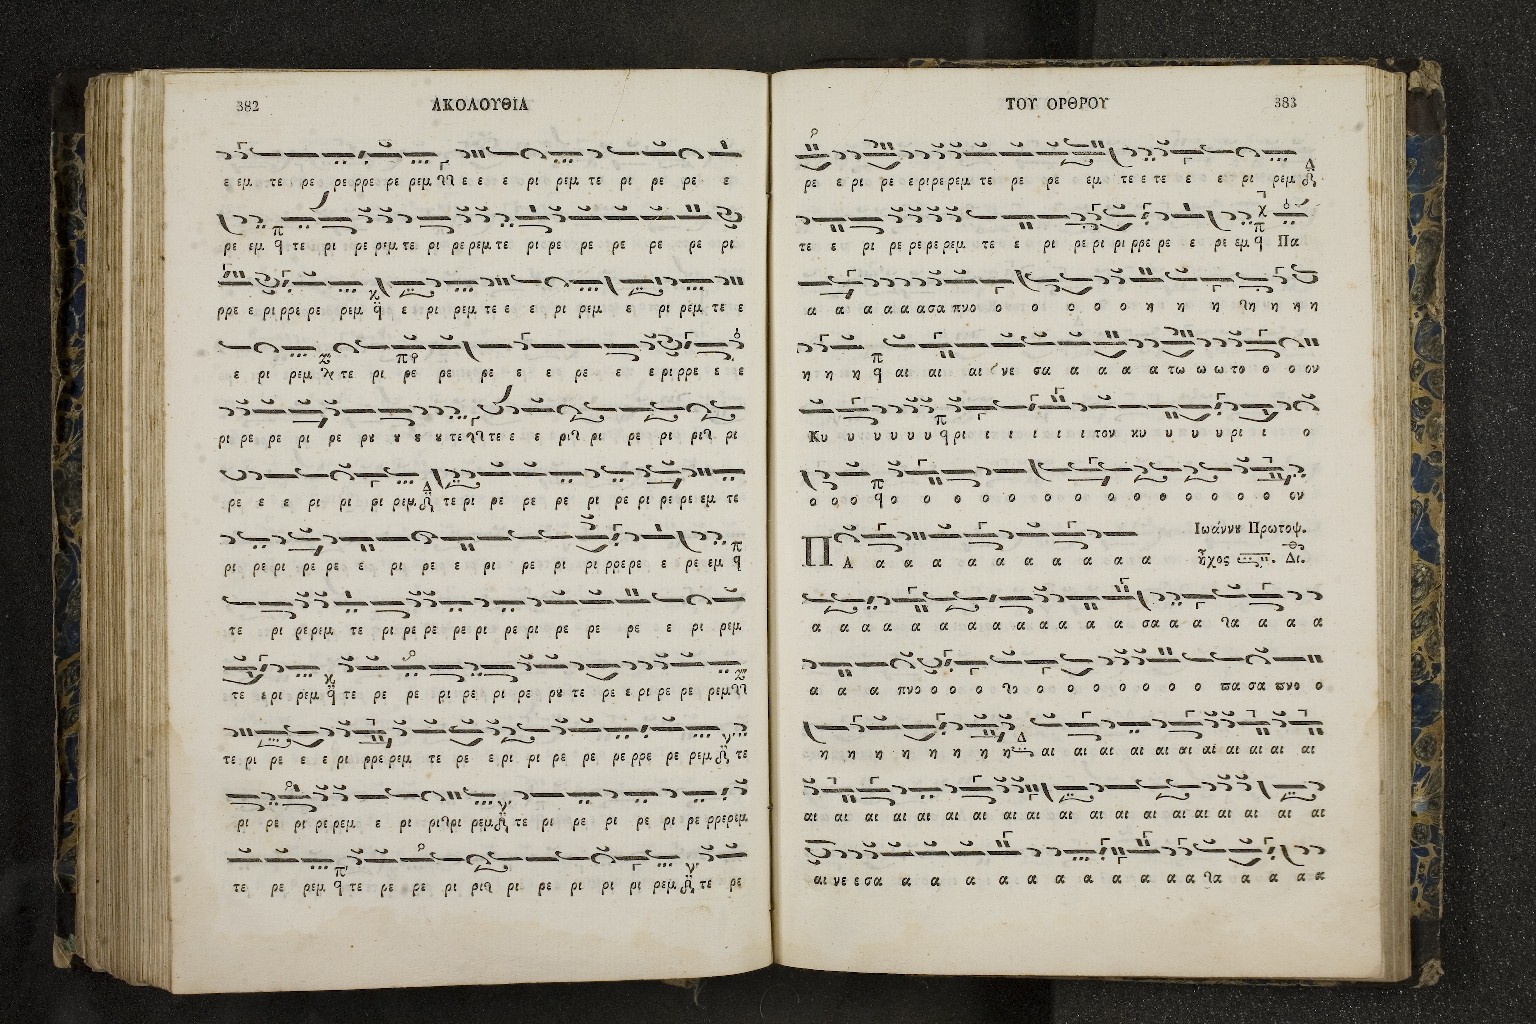 382
ΑΚΟΛΟΥΘΙΑ
ε εμ τε ρε ρε ρρε ρε ρεμ ε ε ε ρι ρεμ τε ρι ρε ρε ε
ρε εμ τε ρι ρε ρεμ τε ρι ρε ρεμ τε ρι ρε ρε ρε ρε ρε ρι
ρρε ε ρι ρρε ρε ρεμ ε ρι ρεμ τε ε ε ρι ρεμ ε ρι ρεμ τε ε
ε ρι ρεμ τε ρι ρε ρε ρε ε ε ρε ε ε ρι ρρε ε ε
ρι ρε ρε ρι ρε ρȣ ȣ ȣ ȣ τε τε ε ε ρι ρι ρε ρι ρι ρι
ρε ε ε ρι ρι ρι ρεμ τε ρι ρε ρε ρε ρε ρι ρε ρι ρε ρε εμ τε
ρι ρε ρι ρε ρε ε ρι ρε ε ρι ρε ρι ρι ρρε ρε ε ρε εμ
τε ρι ρε ρεμ τε ρι ρε ρε ρε ρι ρε ρι ρε ρε ρε ε ρι ρεμ
τε ε ρι ρεμ τε ρε ρε ρι ρε ρι ρε ρȣ τε ρε ε ρι ρε ρε ρεμ
τε ρι ρε ε ε ρι ρρε ρεμ τε ρε ε ρι ρι ρε ρε ρε ρρε ρε ρεμ τε
ρι ρε ρι ρε ρεμ ε ρι ρι ρι ρεμ τε ρι ρε ρι ρε ρι ρε ρρε ρεμ
τε ρε ρεμ τε ρε ρε ρι ρι ρι ρε ρι ρι ρι ρεμ τε ρε
ΤΟΥ ΟΡΘΡΟΥ
383
ρε ε ρι ρε ε ρι ρε ρεμ τε ρε ρε εμ τε ε τε ε ε ρι ρεμ
τε ε ρι ρε ρε ρε ρεμ τε ε ρι ρε ρι ρι ρρε ρε ε ρε εμ Πα
α α α α α α σα πνο ο ο ο ο ο η η η η η η η
η η η αι αι αι νε σα α α α α τω ω ω το ο ο ον
Κυ υ υ υ υ υ υ ρι ι ι ι ι ι τον κυ υ υ υ ρι ι ο
ο ο ο ο ο ο ο ο ο ο ο ο ο ο ο ο ον
Ιωάννȣ Πρωτοψ.
ΠΑ α α α α α α α α α ἦχος Δι.
α α α α α α α α α α α α α σα α α α α α α
α α α πνο ο ο ο ο ο ο ο ο ο ο ο πα σα πνο ο
η η η η η η η η αι αι αι αι αι αι αι αι αι αι αι
αι αι αι αι αι αι αι αι αι αι αι αι αι αι αι αι αι
αι νε ε σα α α α α α α α α α α α α α α